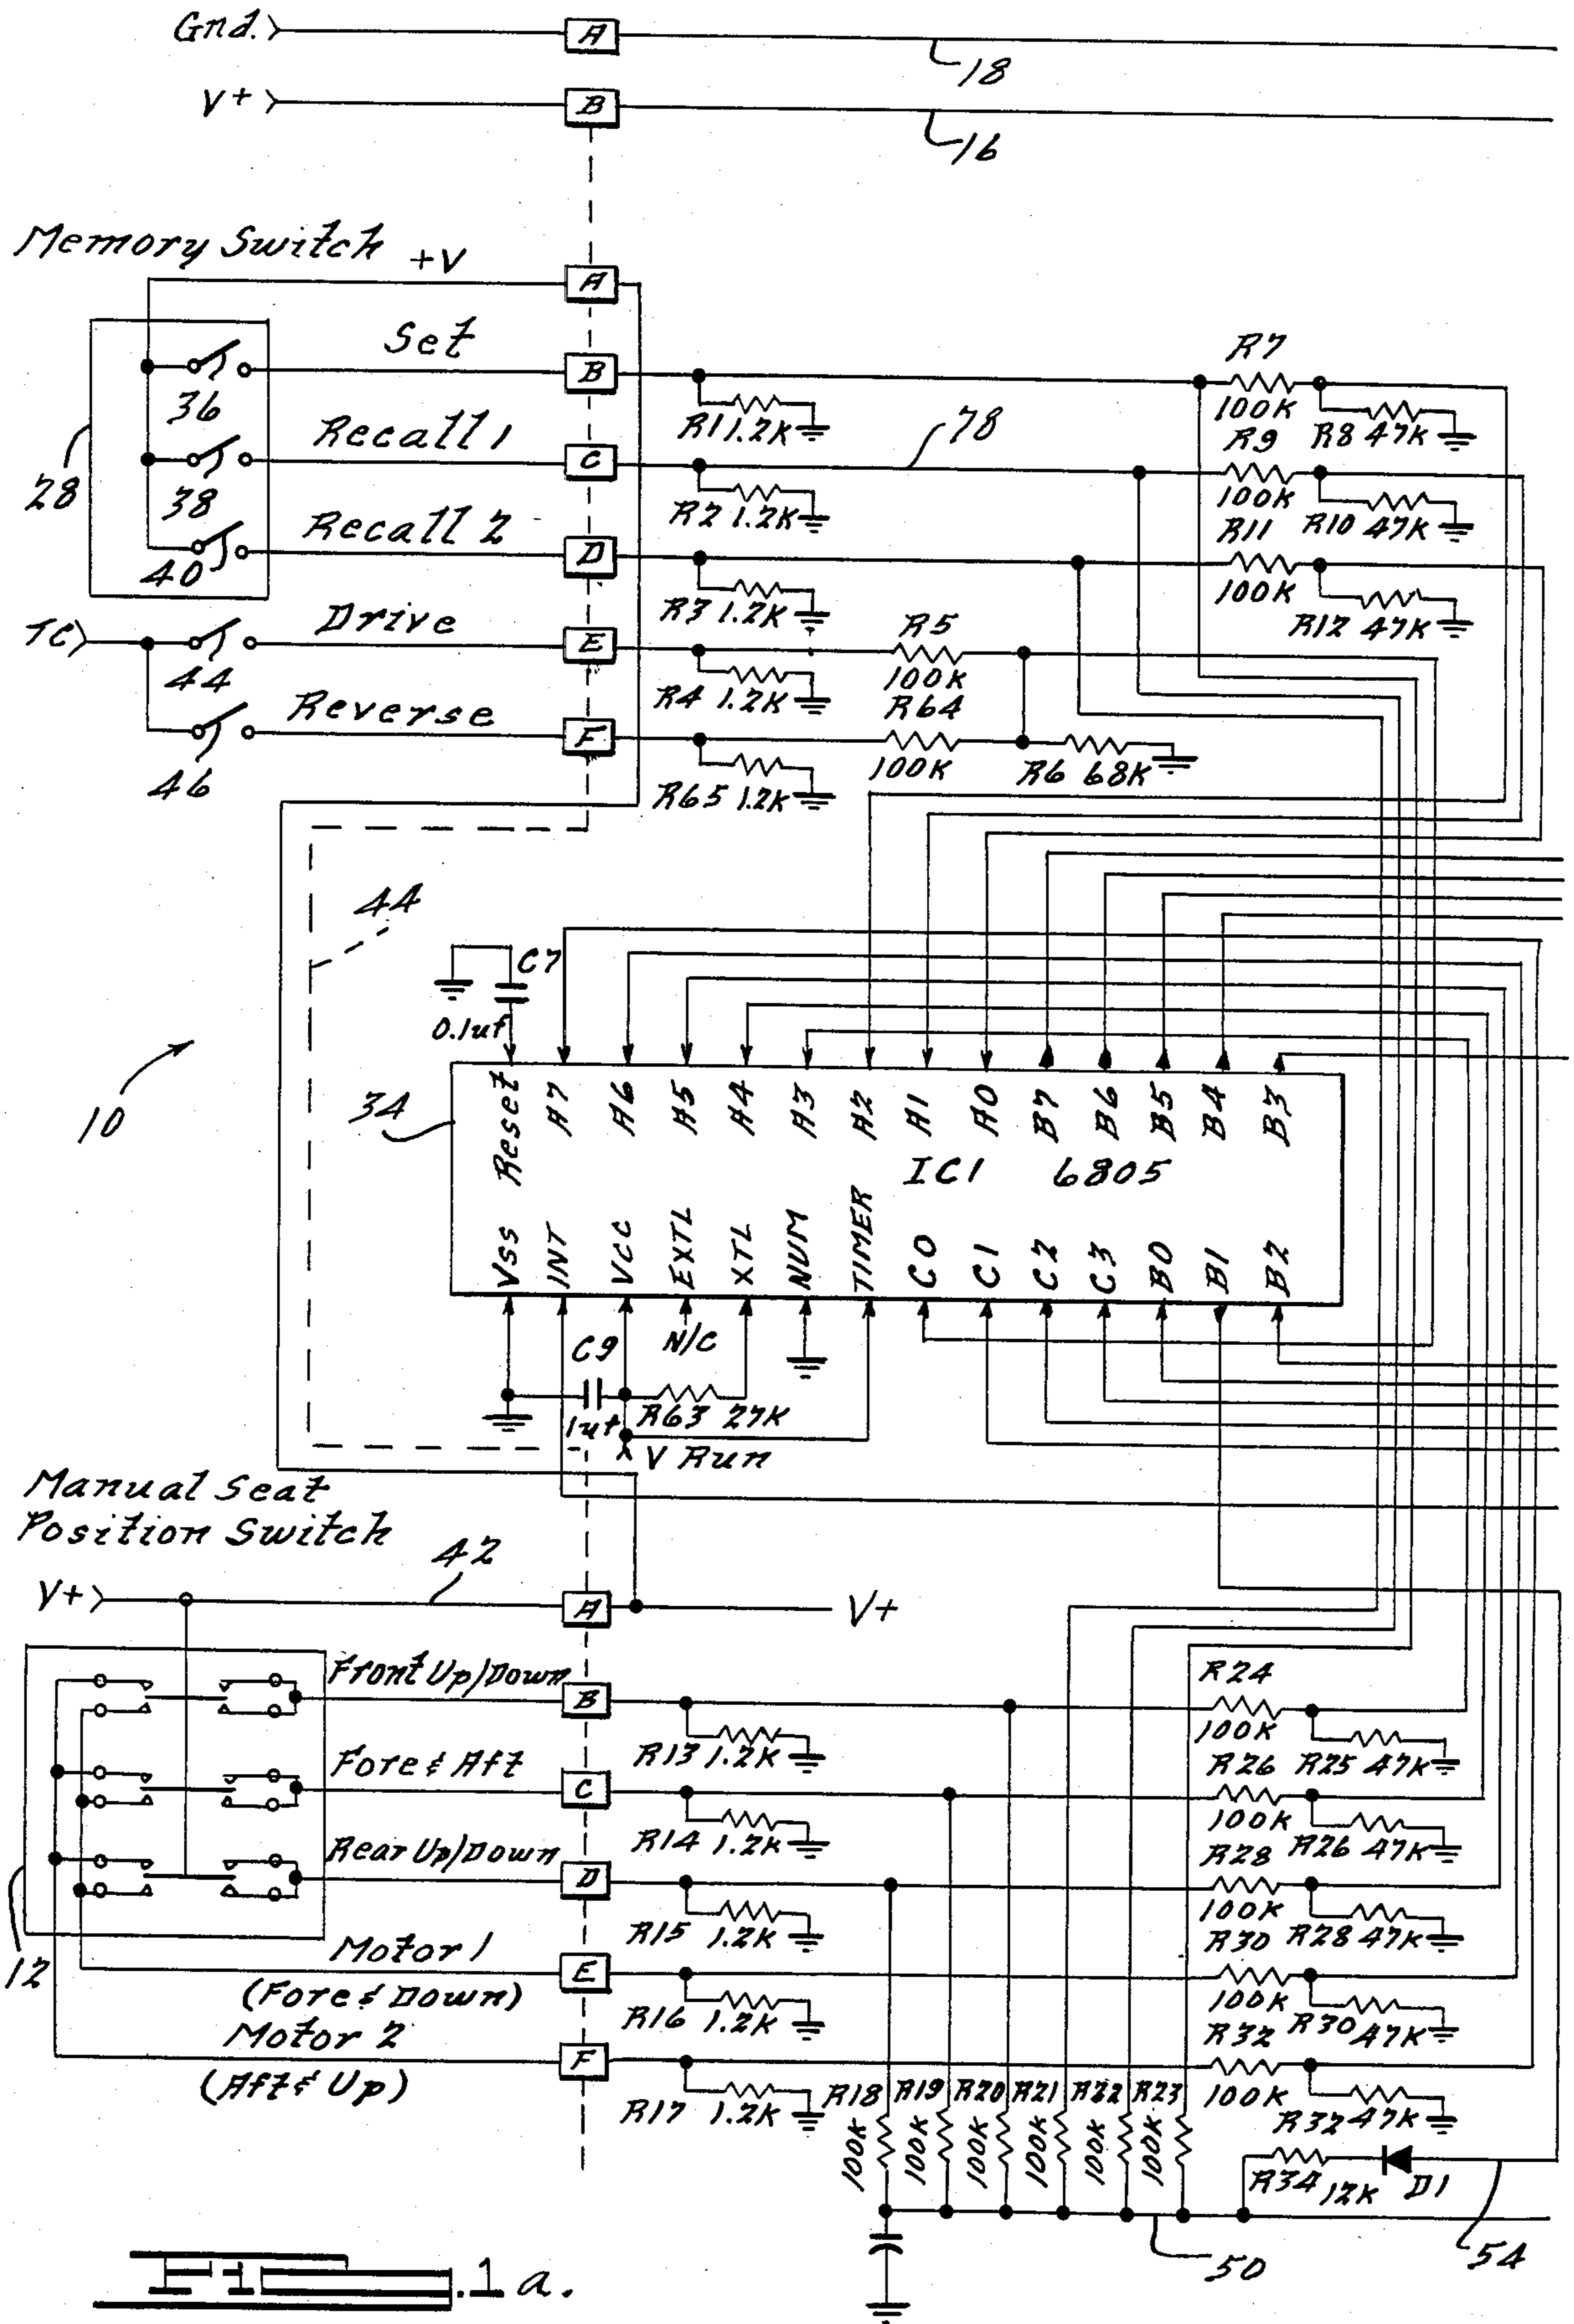 Gnd. A
18
V+ B
16
Memory Switch +V A
Set B R7
36 R1 1.2K 100K R8 47K
Recall 1 C 78 R9
28 38 R2 1.2K 100K R10 47K
Recall 2 D R11
40 R3 1.2K 100K R12 47K
TC Drive E R5
44 R4 1.2K 100K
Reverse F R64
46 R65 1.2K 100K R6 68K
44
C7
0.1uf
10
34
Reset A7 A6 A5 A4 A3 A2 A1 A0 B7 B6 B5 B4 B3
IC1 6805
Vss INT Vcc EXTL XTL NUM TIMER C0 C1 C2 C3 B0 B1 B2
N/C
C9
1uf R63 27K
V Run
Manual Seat
Position Switch
42
V+ A V+
Front Up/Down B R24
R13 1.2K 100K R25 47K
Fore & Aft C R26
R14 1.2K 100K R26 47K
Rear Up/Down D R28
R15 1.2K 100K R28 47K
12
Motor 1 E R30
(Fore & Down) R16 1.2K 100K R30 47K
Motor 2 F R32
(Aft & Up) R17 1.2K 100K R32 47K
R18 R19 R20 R21 R22 R23
100K 100K 100K 100K 100K 100K
R34 12K D1
50
54
Fig.1a.